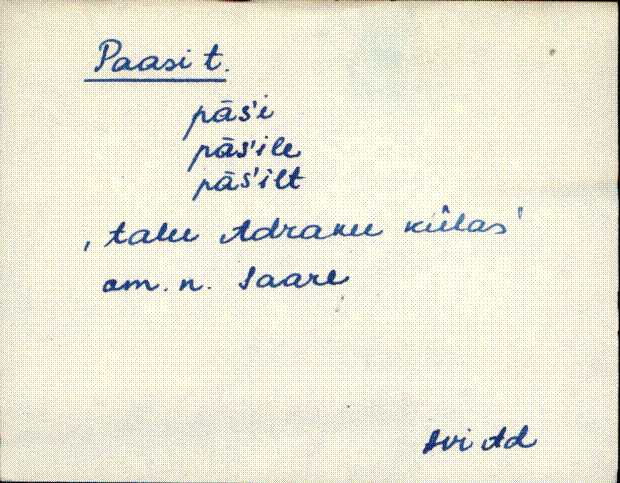 Paasi t.
pāśi
pāśile
pāśilt
‚talu Adraku külas'
om. n. Saare
Avi Ad